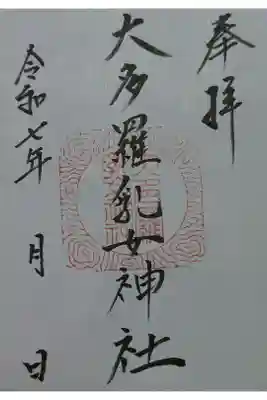 奉拝
大多羅乳女神社
令和七年 月 日